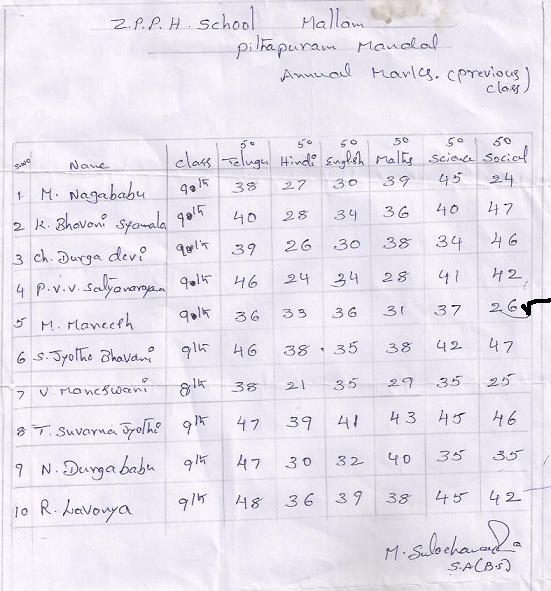 Z.P.P.H. School Mallam
pithapuram Mandal
Annual Marks. (previous
class)
50 50 50 50 50 50
S.NO Name class Telugu Hindi English Maths Science Social
1 M. Nagababu 9th 38 27 30 39 45 24
2 K. Bhavani Syamala 9th 40 28 34 36 40 47
3 Ch. Durga devi 9th 39 26 30 38 34 46
4 P.V.V. Satyanarayana 9th 46 24 34 28 41 42
5 M. Maneesh 9th 36 33 36 31 37 26
6 S. Jyothi Bhavani 9th 46 38 35 38 42 47
7 V. Maneswani 8th 38 21 35 29 35 25
8 T. Suvarna Jyothi 9th 47 39 41 43 45 46
9 N. Durgababu 9th 47 30 32 40 35 35
10 R. Lavanya 9th 48 36 39 38 45 42
M.
S.A (B.S)